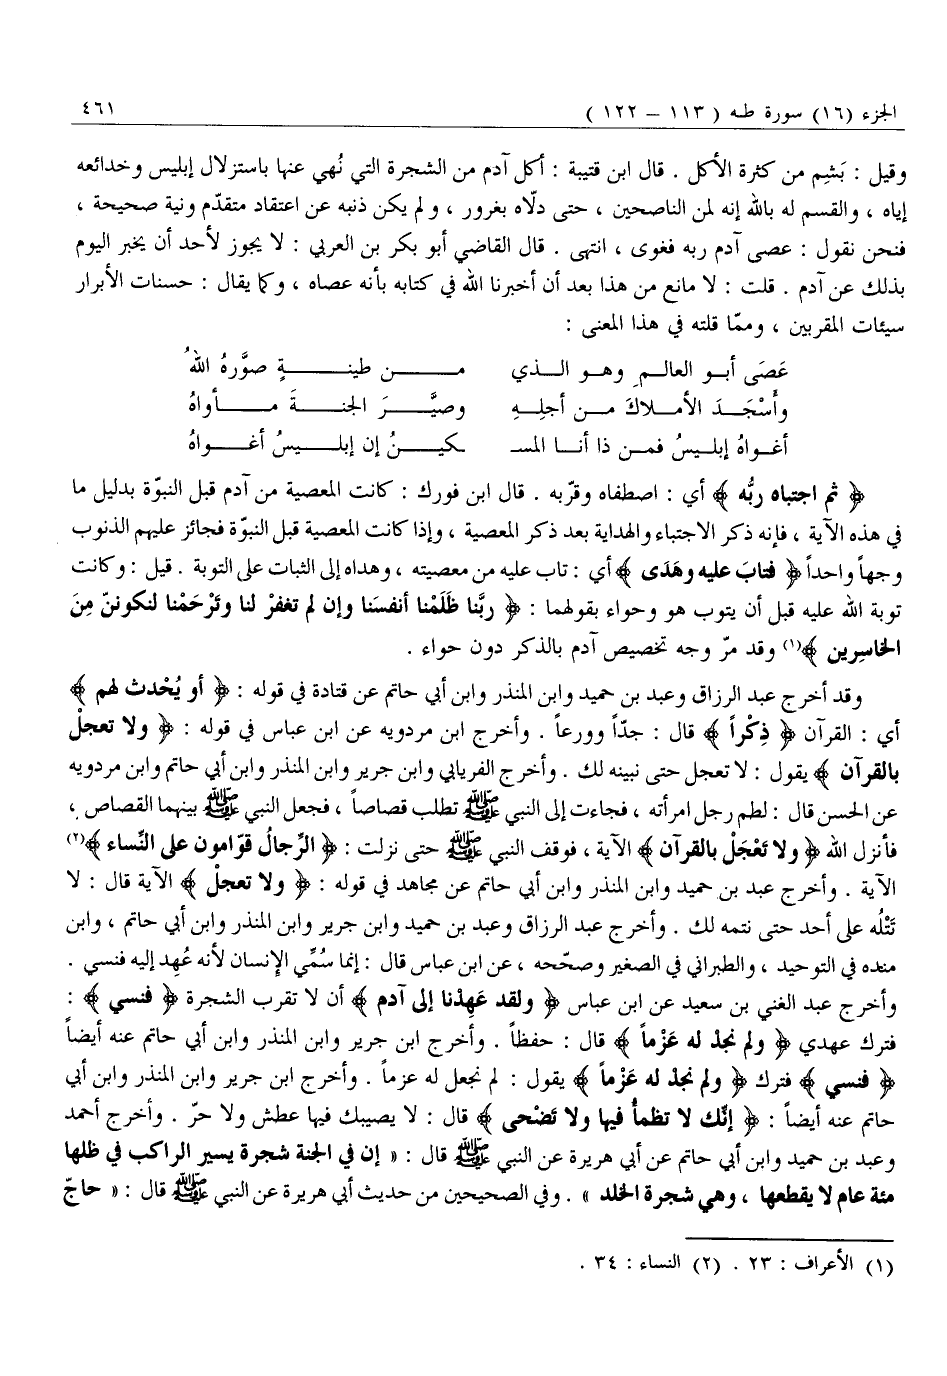 الجزء (١٦) سورة طه ( ١١٣ – ١٢٢ ) ٤٦١
وقيل : بَشِم من كثرة الأكل . قال ابن قتيبة : أكل آدم من الشجرة التي نُهي عنها باستزلال إبليس وخدائعه
إياه ، والقسم له بالله إنه لمن الناصحين ، حتى دلّاه بغرور ، ولم يكن ذنبه عن اعتقاد متقدّم ونية صحيحة ،
فنحن نقول : عصى آدم ربه فغوى ، انتهى . قال القاضي أبو بكر بن العربي : لا يجوز لأحد أن يخبر اليوم
بذلك عن آدم . قلت : لا مانع من هذا بعد أن أخبرنا الله في كتابه بأنه عصاه ، وكما يقال : حسنات الأبرار
سيئات المقربين ، وممّا قلته في هذا المعنى :
عَصَى أبو العالمِ وهو الذي من طينةٍ صوَّرهُ اللهُ
وأَسْجَدَ الأملاكَ من أجلِهِ وصيَّرَ الجنةَ مأواهُ
أغواهُ إبليسُ فمن ذا أنا المسـ ـكينُ إن إبليسُ أغواهُ
﴿ ثم اجتباه ربُّه ﴾ أي : اصطفاه وقرّبه . قال ابن فورك : كانت المعصية من آدم قبل النبوّة بدليل ما
في هذه الآية ، فإنه ذكر الاجتباء والهداية بعد ذكر المعصية ، وإذا كانت المعصية قبل النبوّة فجائز عليهم الذنوب
وجهاً واحداً ﴿ فتابَ عليه وهَدَى ﴾ أي : تاب عليه من معصيته ، وهداه إلى الثبات على التوبة . قيل : وكانت
توبة الله عليه قبل أن يتوب هو وحواء بقولهما : ﴿ ربَّنا ظَلَمْنا أنفسَنا وإن لم تغفرْ لنا وتَرْحَمْنا لنكوننّ مِنَ
الخاسِرين ﴾(١) وقد مرّ وجه تخصيص آدم بالذكر دون حواء .
وقد أخرج عبد الرزاق وعبد بن حميد وابن المنذر وابن أبي حاتم عن قتادة في قوله : ﴿ أو يُحْدث لهم ﴾
أي : القرآن ﴿ ذِكْراً ﴾ قال : جدّاً وورعاً . وأخرج ابن مردويه عن ابن عباس في قوله : ﴿ ولا تعجلْ
بالقرآن ﴾ يقول : لا تعجل حتى نبينه لك . وأخرج الفريابي وابن جرير وابن المنذر وابن أبي حاتم وابن مردويه
عن الحسن قال : لطم رجل امرأته ، فجاءت إلى النبي ﷺ تطلب قصاصاً ، فجعل النبي ﷺ بينهما القصاص ،
فأنزل الله ﴿ ولا تَعْجَلْ بالقرآن ﴾ الآية ، فوقف النبي ﷺ حتى نزلت : ﴿ الرِّجالُ قوّامون على النِّساء ﴾(٢)
الآية . وأخرج عبد بن حميد وابن المنذر وابن أبي حاتم عن مجاهد في قوله : ﴿ ولا تعجلْ ﴾ الآية قال : لا
تَتْلُه على أحد حتى نتمه لك . وأخرج عبد الرزاق وعبد بن حميد وابن جرير وابن المنذر وابن أبي حاتم ، وابن
منده في التوحيد ، والطبراني في الصغير وصحّحه ، عن ابن عباس قال : إنما سُمِّي الإنسان لأنه عُهد إليه فنسي .
وأخرج عبد الغني بن سعيد عن ابن عباس ﴿ ولقد عَهِدْنا إلى آدم ﴾ أن لا تقرب الشجرة ﴿ فنسي ﴾ :
فترك عهدي ﴿ ولم نجدْ له عَزْماً ﴾ قال : حفظاً . وأخرج ابن جرير وابن المنذر وابن أبي حاتم عنه أيضاً
﴿ فنسي ﴾ فترك ﴿ ولم نجدْ له عَزْماً ﴾ يقول : لم نجعل له عزماً . وأخرج ابن جرير وابن المنذر وابن أبي
حاتم عنه أيضاً : ﴿ إنّك لا تظمأُ فيها ولا تَضْحى ﴾ قال : لا يصيبك فيها عطش ولا حرّ . وأخرج أحمد
وعبد بن حميد وابن أبي حاتم عن أبي هريرة عن النبي ﷺ قال : « إن في الجنة شجرة يسير الراكب في ظلها
مئة عام لا يقطعها ، وهي شجرة الخلد » . وفي الصحيحين من حديث أبي هريرة عن النبي ﷺ قال : « حاجّ
(١) الأعراف : ٢٣ . (٢) النساء : ٣٤ .